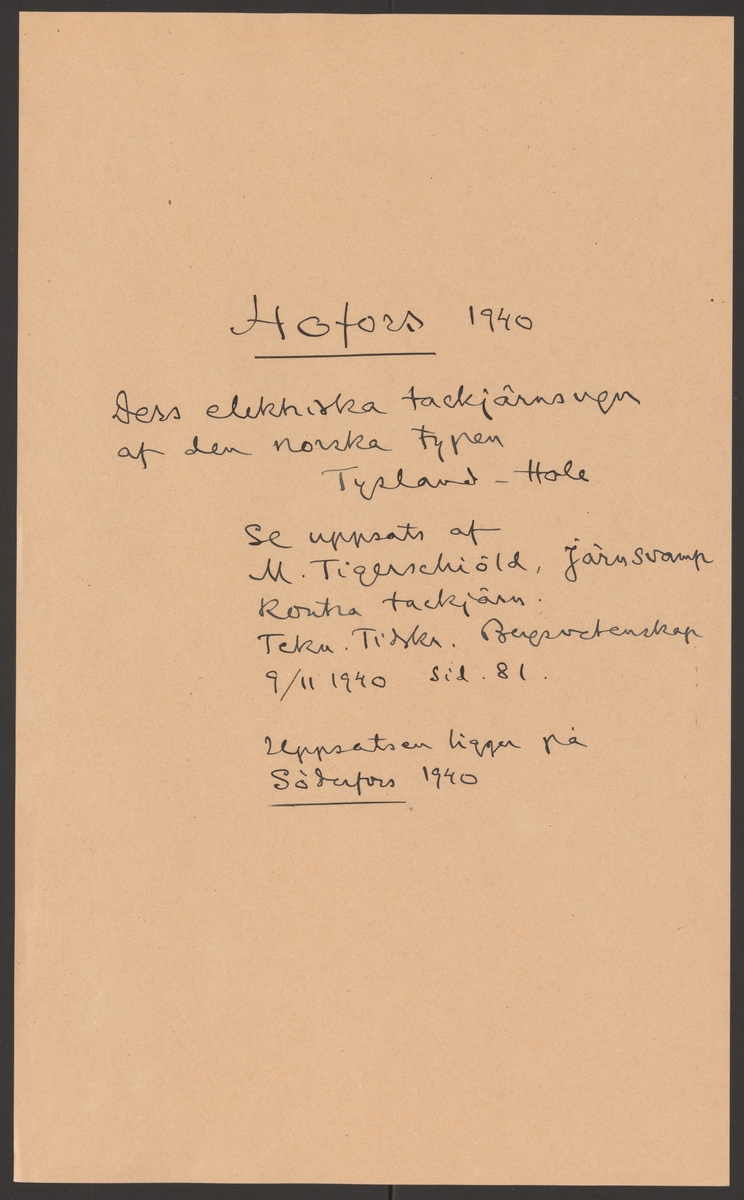 Hofors 1940
Dess elektriska tackjärnsugn
af den norska typen
Tysland - Hole
Se uppsats af
M. Tigerschiöld, Järnsvamp
kontra tackjärn.
Tekn. Tidskr. Bergsvetenskap
9/11 1940 sid. 81.
Uppsatsen ligger på
Söderfors 1940